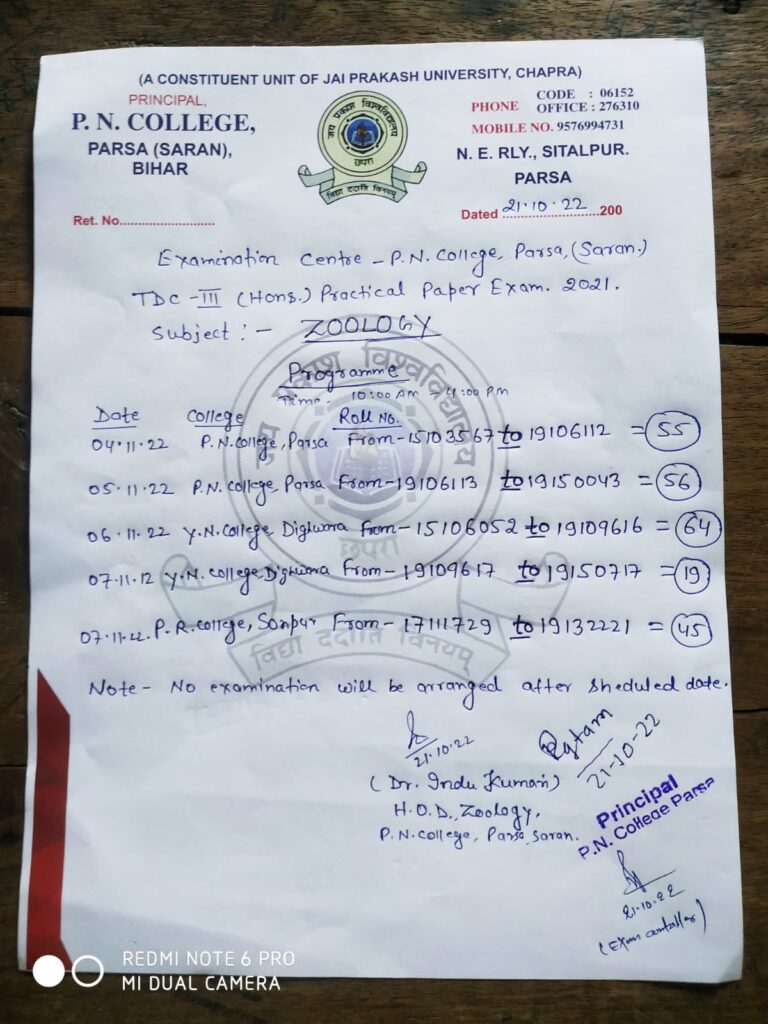 (A CONSTITUENT UNIT OF JAI PRAKASH UNIVERSITY, CHAPRA)
PRINCIPAL,
P. N. COLLEGE,
PARSA (SARAN),
BIHAR
जय प्रकाश विश्वविद्यालय
छपरा
विद्या ददाति विनयम्
CODE : 06152
PHONE OFFICE : 276310
MOBILE NO. 9576994731
N. E. RLY., SITALPUR.
PARSA
Ret. No..........................
Dated 21.10.22 200
Examination Centre - P.N. College, Parsa, (Saran.)
TDC - III (Hons.) Practical Paper Exam. 2021.
Subject :- ZOOLOGY
Programme
Time - 10:00 AM - 4:00 PM
Date College Roll No.
04.11.22 P.N. College, Parsa From - 15103567 to 19106112 = 55
05.11.22 P.N. College, Parsa From - 19106113 to 19150043 = 56
06.11.22 Y.N. College, Dighwara From - 15106052 to 19109616 = 64
07.11.12 Y.N. College Dighwara From - 19109617 to 19150717 = 19
07.11.22. P.R. College, Sonpur From - 17111729 to 19132221 = 45
जय प्रकाश विश्वविद्यालय
छपरा
विद्या ददाति विनयम्
Note - No examination will be arranged after sheduled date.
21.10.22
(Dr. Indu Kumari)
H.O.D., Zoology,
P.N. College, Parsa, Saran.
21-10-22
Principal
P.N. College Parsa
21.10.22
(Exam controller)
REDMI NOTE 6 PRO
MI DUAL CAMERA